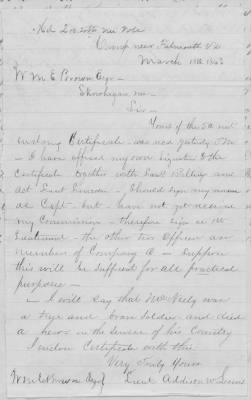 Hd Qrs 20th Me Vols
Camp near Falmouth Va
March 1863
Wm E Brown Esqr
Skowhegan Me
Sir
Yours of the 5th inst
enclosing Certificate was recd yesterday P.M.
- I have affixed my own signature to the
Certificate together with Lieut Billings and
Act Lieut - I should sign my name
as Capt - but have not yet received
my Commission - therefore sign as 1st
Lieutenant - the other two Officers are
members of Company A - suppose
this will be sufficient for all practical
purposes -
- I will say that McNeely was
a true and brave Soldier and died
a hero in the service of his Country
I enclose Certificate with this
Very Truly Yours
Wm E Brown Esqr Lieut Addison W Lewis